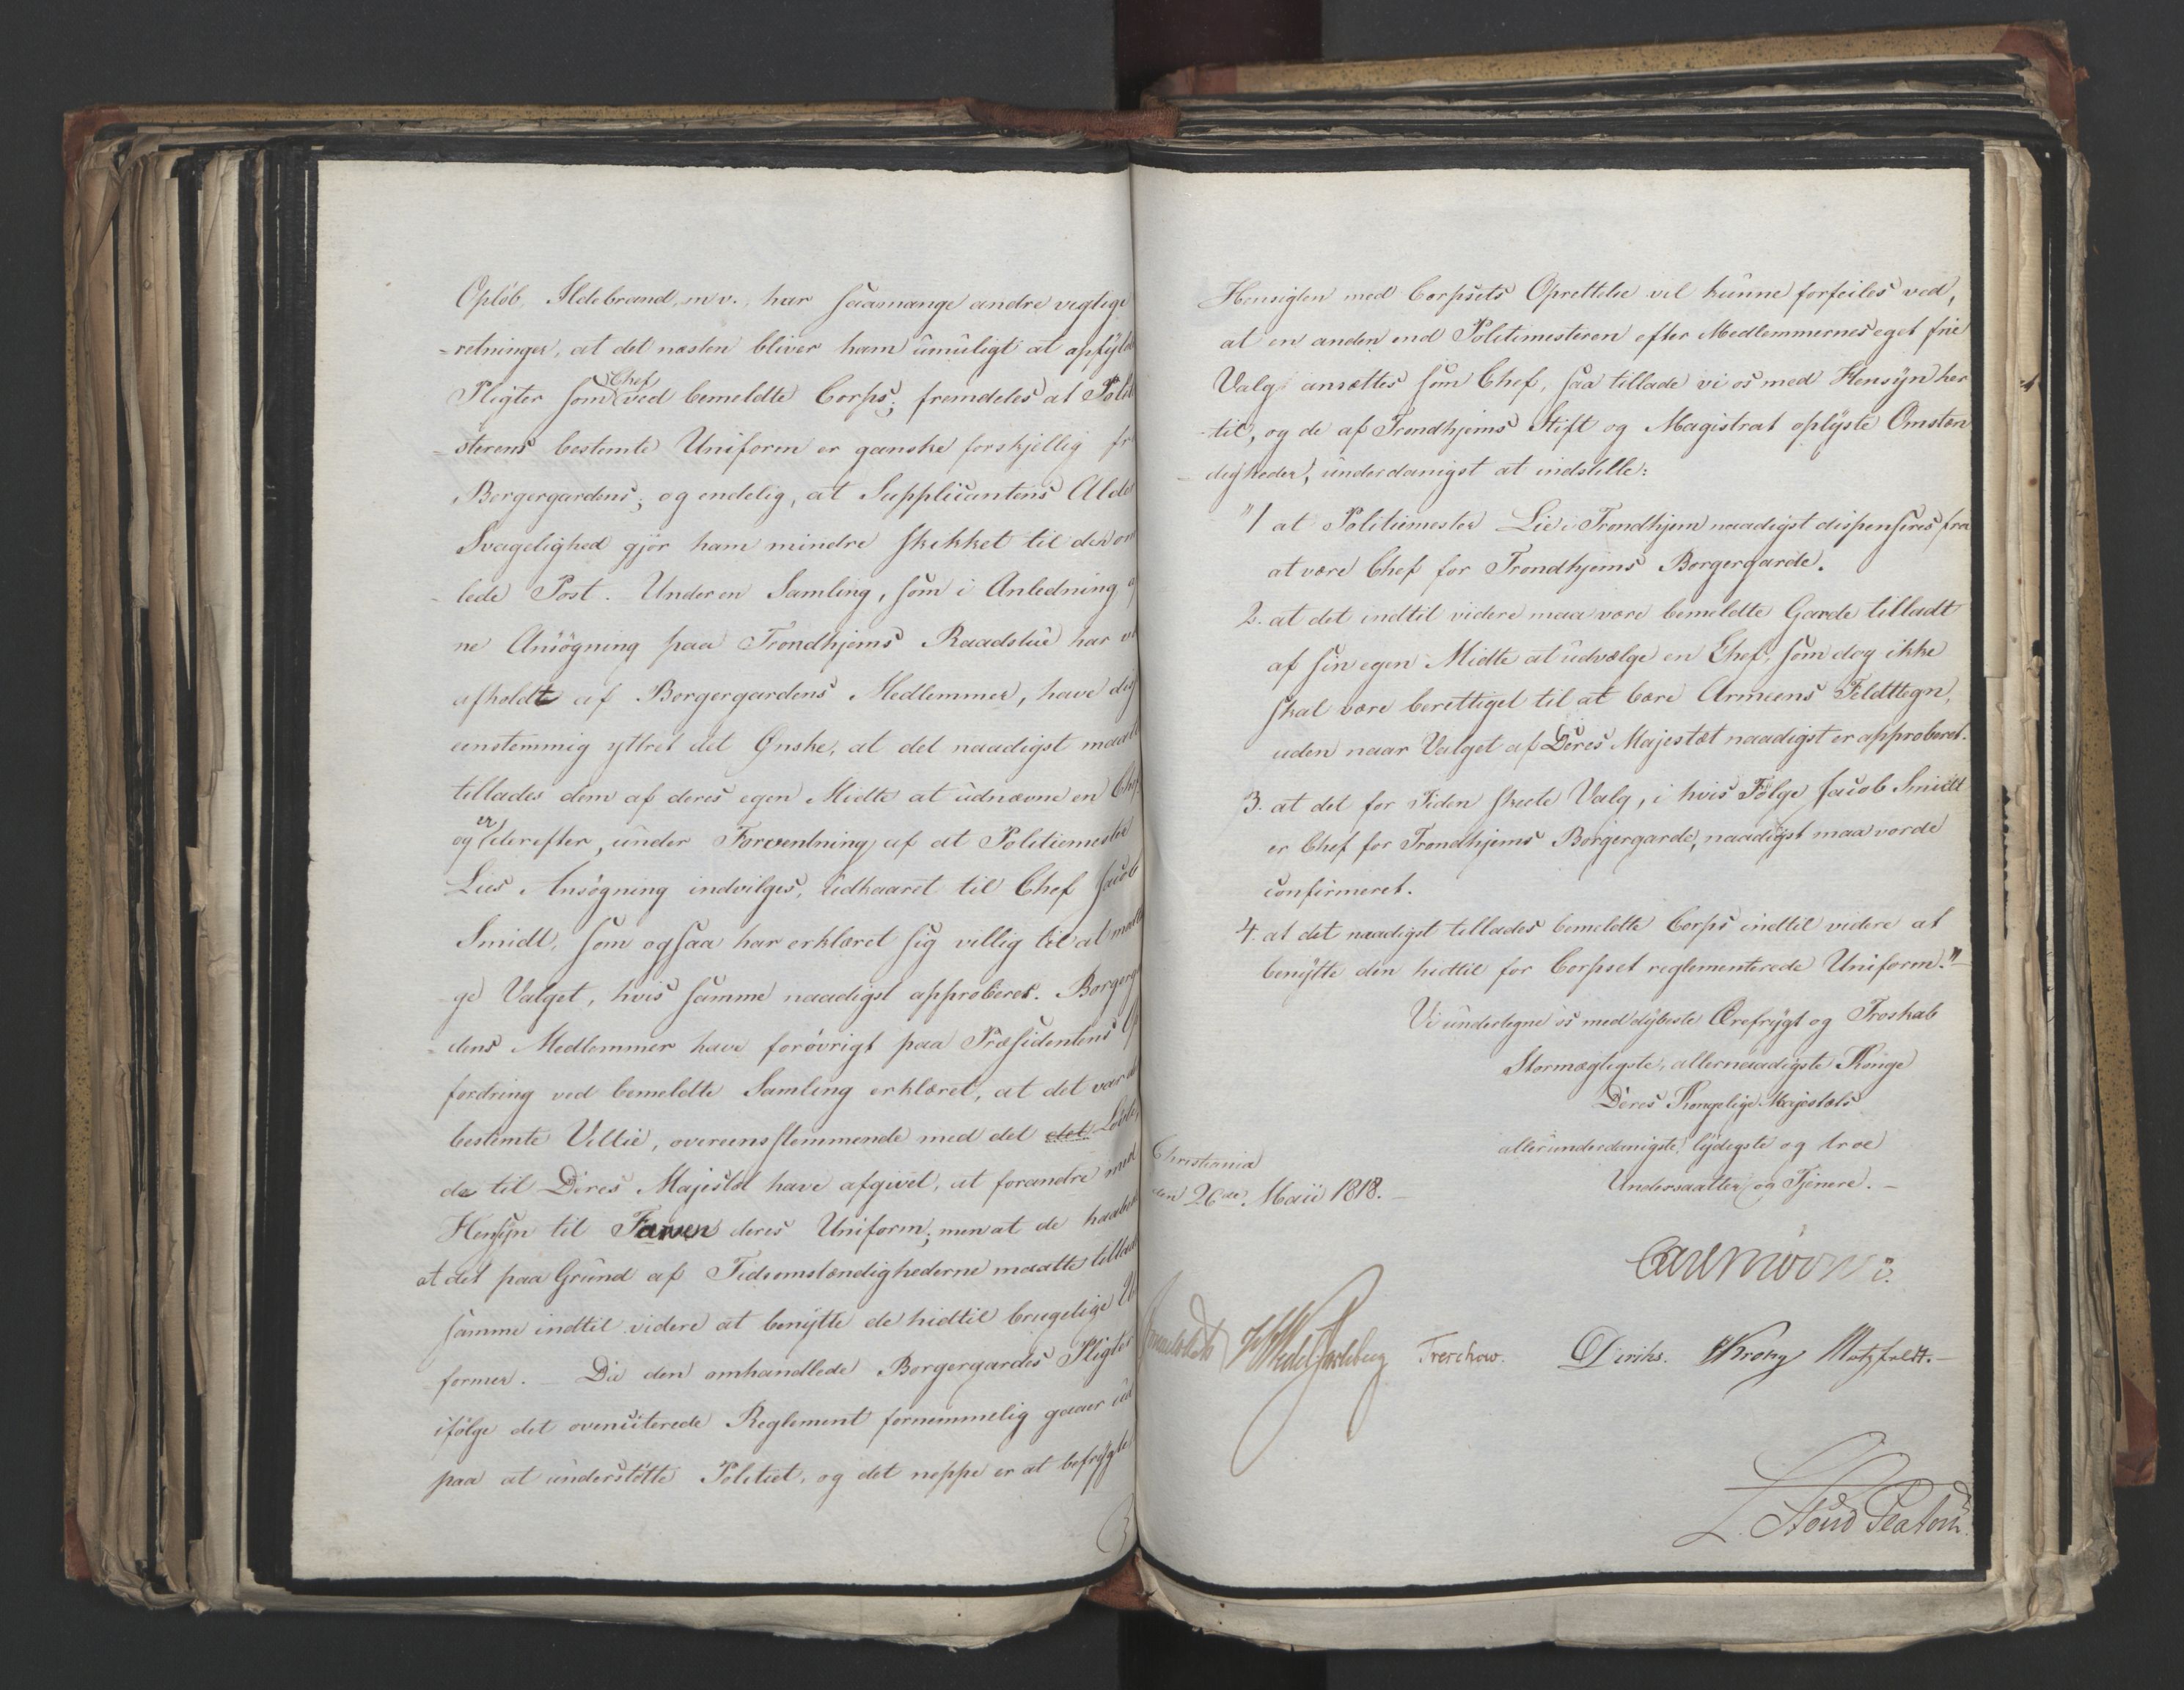 Opløb, Ildebrand, m. v., har saamange andre vigtige
-retninger, at det næsten bliver ham umuligt at opfylde
Chef
Pligter som ved bemeldte Corps; fremdeles at Polit
-sterens bestemte Uniform er ganske forskjellig fr
Borgergardens; og endelig, at Supplicantens Alder
Svagelighed gjør ham mindre skikket til den om
-lede Post. Under en Samling, som i Anledning
ne Ansøgning paa Trondhjems Raadstue har
afholdt af Borgergardens Medlemmer, have
eenstemmig yttret det Ønske, at det naadigst maatte
tillades dem af deres egen Midte at udnævne en Chef,
er
og derefter, under Forventning af at Politiemester
Lies Ansøgning indvilges, udkaaret til Chef Jacob
Smidt, som ogsaa har erklæret sig villig til at modta
ge Valget, hvis samme naadigst approberes. Borgerga
-dens Medlemmer have forøvrigt paa Præsidentens Op
fordring ved bemeldte Samling erklæret, at det var
bestemte Villie, overeensstemmende med det det Løfte
de til Deres Majestæt have afgivet, at forandre med
Hensyn til Farven deres Uniform; men at de haabede
at det paa Grund af Tidsomstændighederne maatte tillad
samme indtil videre at benytte de hidtil brugelige Uni
former. – Da den omhandlede Borgergardes Pligter
ifølge det ovenciterede Reglement fornemmelig gaaer ud
paa at understøtte Politiet, og det neppe er at befrygte
Hensigten med Corpsets Oprettelse vil kunne forfeiles ved,
at en anden end Politimesteren efter Medlemmernes eget frie
Valg ansættes som Chef, saa tillade vi os med Hensyn her
-til, og de af Trondhjems Stift og Magistrat oplyste Omstæn
-digheder, underdanigst at indstille:
"1 at Politiemester Lie i Trondhjem naadigst dispenseres fra
at være Chef for Trondhjems Borgergarde.
2. at det indtil videre maa være bemeldte Garde tilladt
af sin egen Midte at udvælge en Chef, som dog ikke
skal være berettiget til at bære Armeens Feldttegn,
uden naar Valget af Deres Majestæt naadigst er approberet.
3. at det for Tiden skeete Valg, i hvis Følge Jacob Smidt
er Chef for Trondhjems Borgergarde, naadigst maa vorde
confirmeret.
4. at det naadigst tillades bemeldte Corps indtil videre at
benytte den hidtil for Corpset reglementerede Uniform."
Vi undertegne os med dybeste Ærefrygt og Troskab
Stormægtigste, allernaadigste Konge
Deres Kongelige Majestæts
allerunderdanigste, lydigste og troe
Undersaatter og Tjenere. –
Christiania
den 26de Maii 1818. –
Carl Mörner.
Sommerhielm HWedel Jarlsberg Treschow. Diriks. Krohg Motzfeldt. –
L. Stoud Platou.